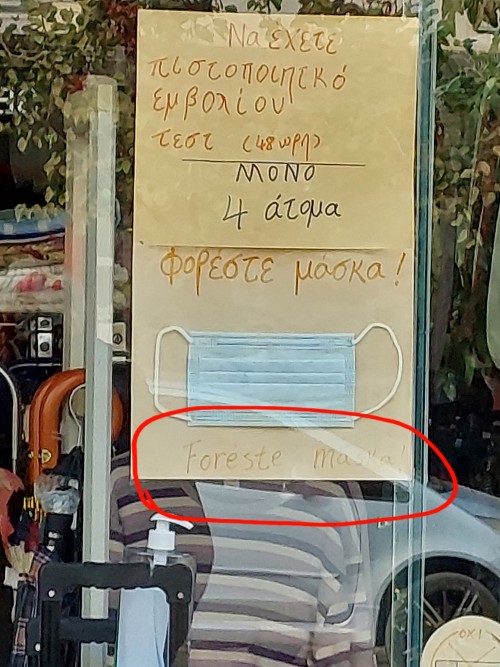 Να έχετε
πιστοποιητικό
εμβολίου
τεστ (48ωρη)
ΜΟΝΟ
4 άτομα
Φορέστε μάσκα!
Foreste maska!
ΟΧΙ